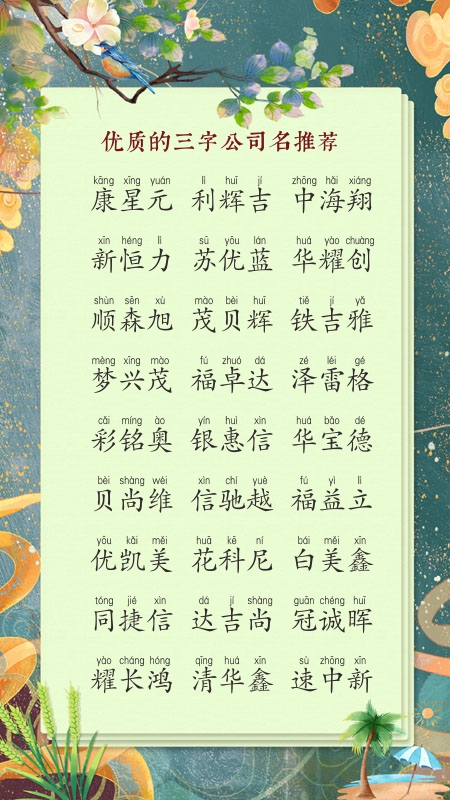 优质的三字公司名推荐
kāng xīng yuán lì huī jí zhōng hǎi xiáng
康星元 利辉吉 中海翔
xīn héng lì sū yōu lán huá yào chuàng
新恒力 苏优蓝 华耀创
shùn sēn xù mào bèi huī tiě jí yǎ
顺森旭 茂贝辉 铁吉雅
mèng xīng mào fú zhuó dá zé léi gé
梦兴茂 福卓达 泽雷格
cǎi míng ào yín huì xìn huá bǎo dé
彩铭奥 银惠信 华宝德
bèi shàng wéi xìn chí yuè fú yì lì
贝尚维 信驰越 福益立
yōu kǎi měi huā kē ní bái měi xīn
优凯美 花科尼 白美鑫
tóng jié xìn dá jí shàng guān chéng huī
同捷信 达吉尚 冠诚晖
yào cháng hóng qīng huá xīn sù zhōng xīn
耀长鸿 清华鑫 速中新